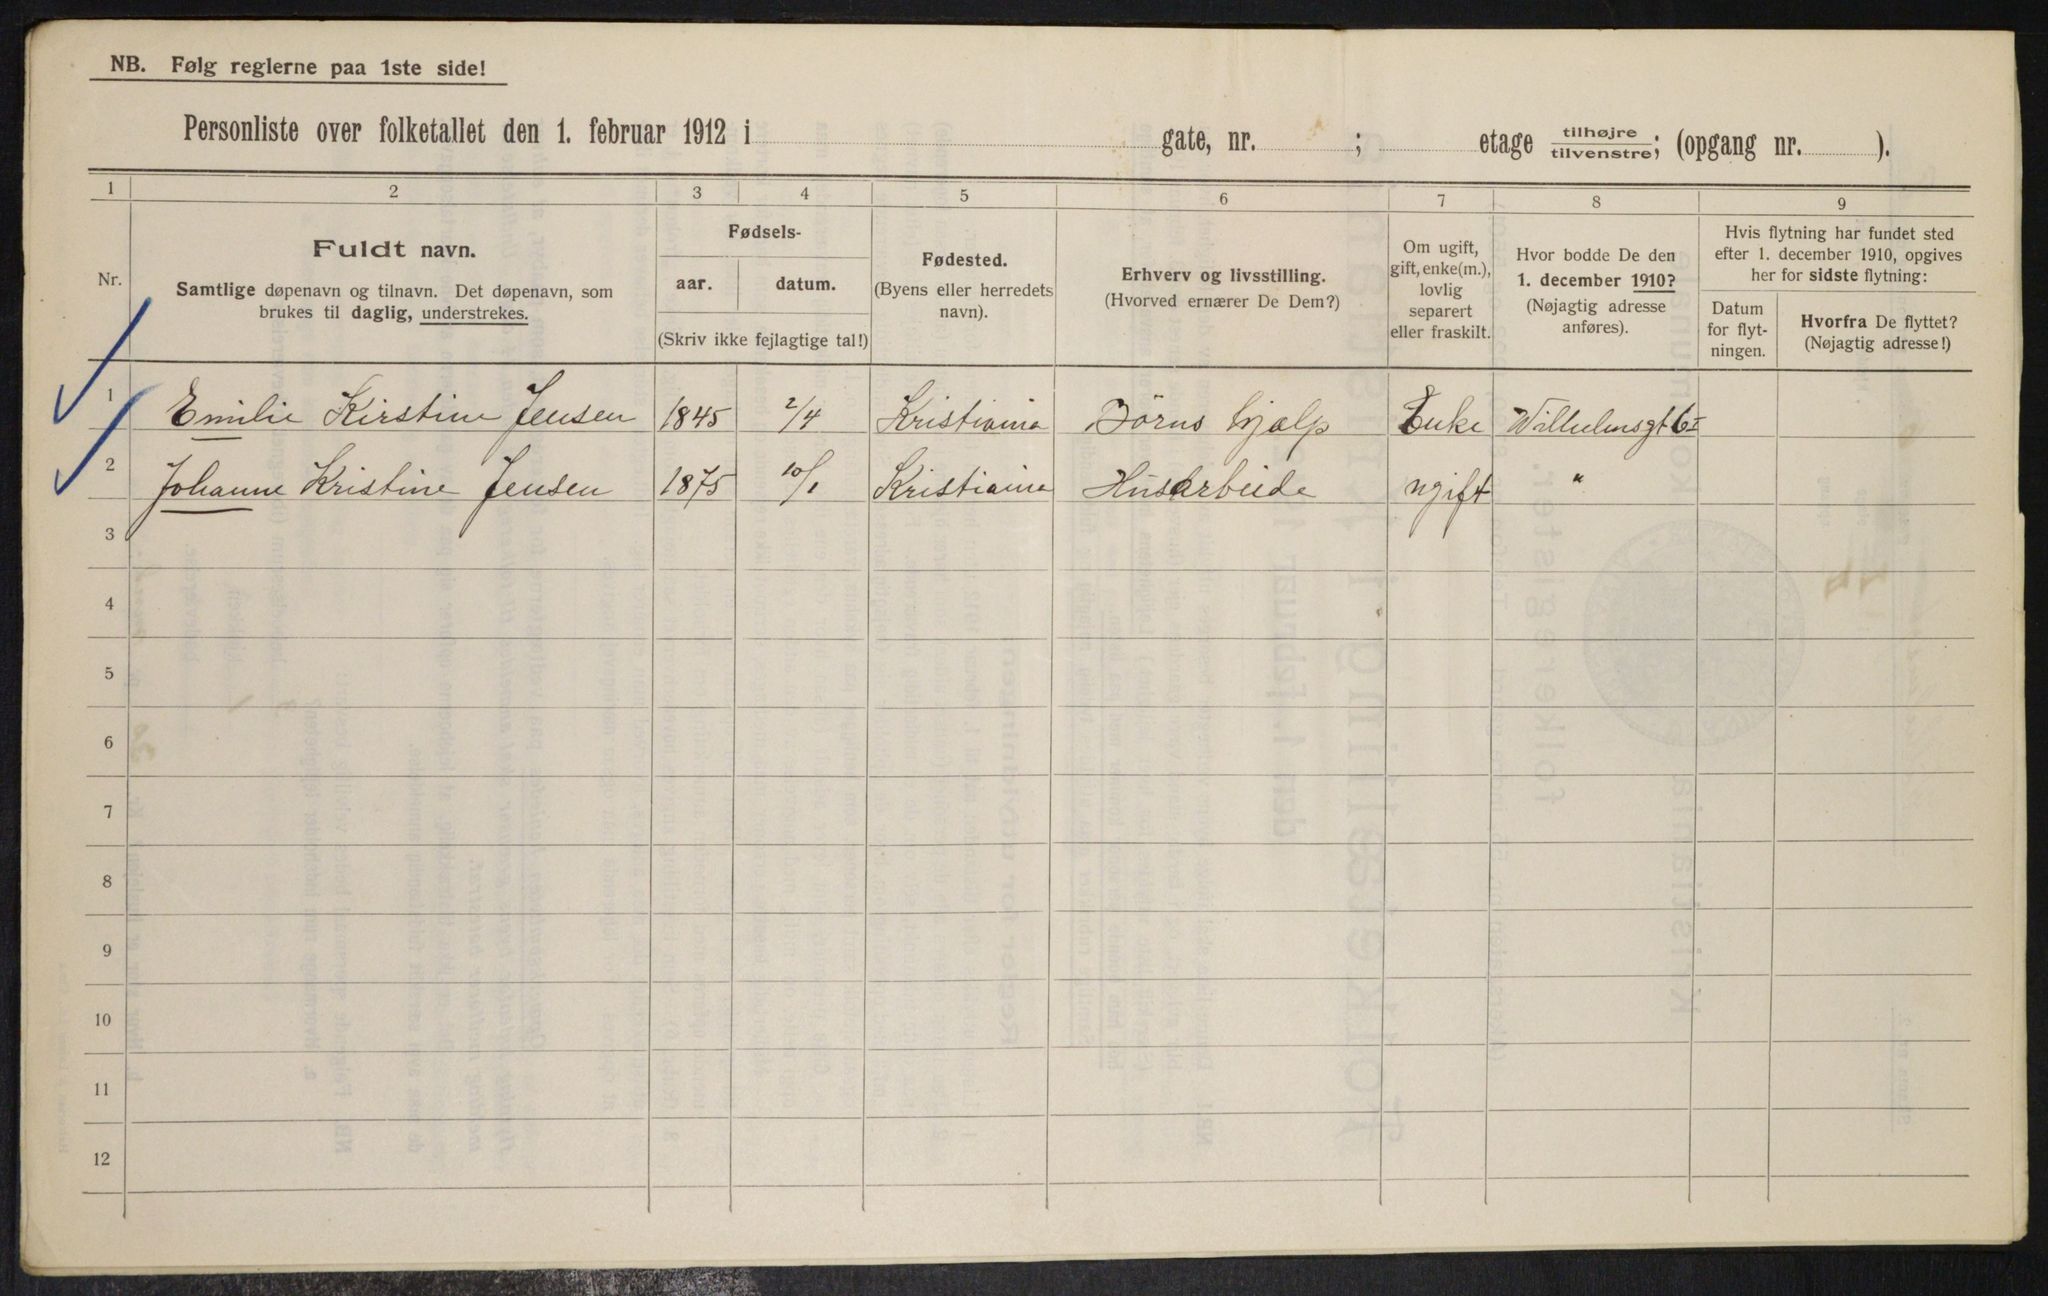 NB. Følg reglerne paa 1ste side!
Personliste over folketallet den 1. februar 1912 i gate, nr. ; etage tilhøjre/tilvenstre; (opgang nr. ).
1 2 3 4 5 6 7 8 9
Nr.
Fuldt navn.
Samtlige døpenavn og tilnavn. Det døpenavn, som
brukes til daglig, understrekes.
Fødsels-
aar. datum.
(Skriv ikke fejlagtige tal!)
Fødested.
(Byens eller herredets
navn).
Erhverv og livsstilling.
(Hvorved ernærer De Dem?)
Om ugift,
gift, enke(m.),
lovlig
separert
eller fraskilt.
Hvor bodde De den
1. december 1910?
(Nøjagtig adresse
anføres).
Hvis flytning har fundet sted
efter 1. december 1910, opgives
her for sidste flytning:
Datum
for flyt-
ningen.
Hvorfra De flyttet?
(Nøjagtig adresse!)
1 Emilie Kirstine Jensen 1845 2/4 Kristiania Börns hjælp Enke Wilhelmsgt 6 I
2 Johanne Kristine Jensen 1875 10/1 Kristiania Husarbeide ugift "
3
4
5
6
7
8
9
10
11
12